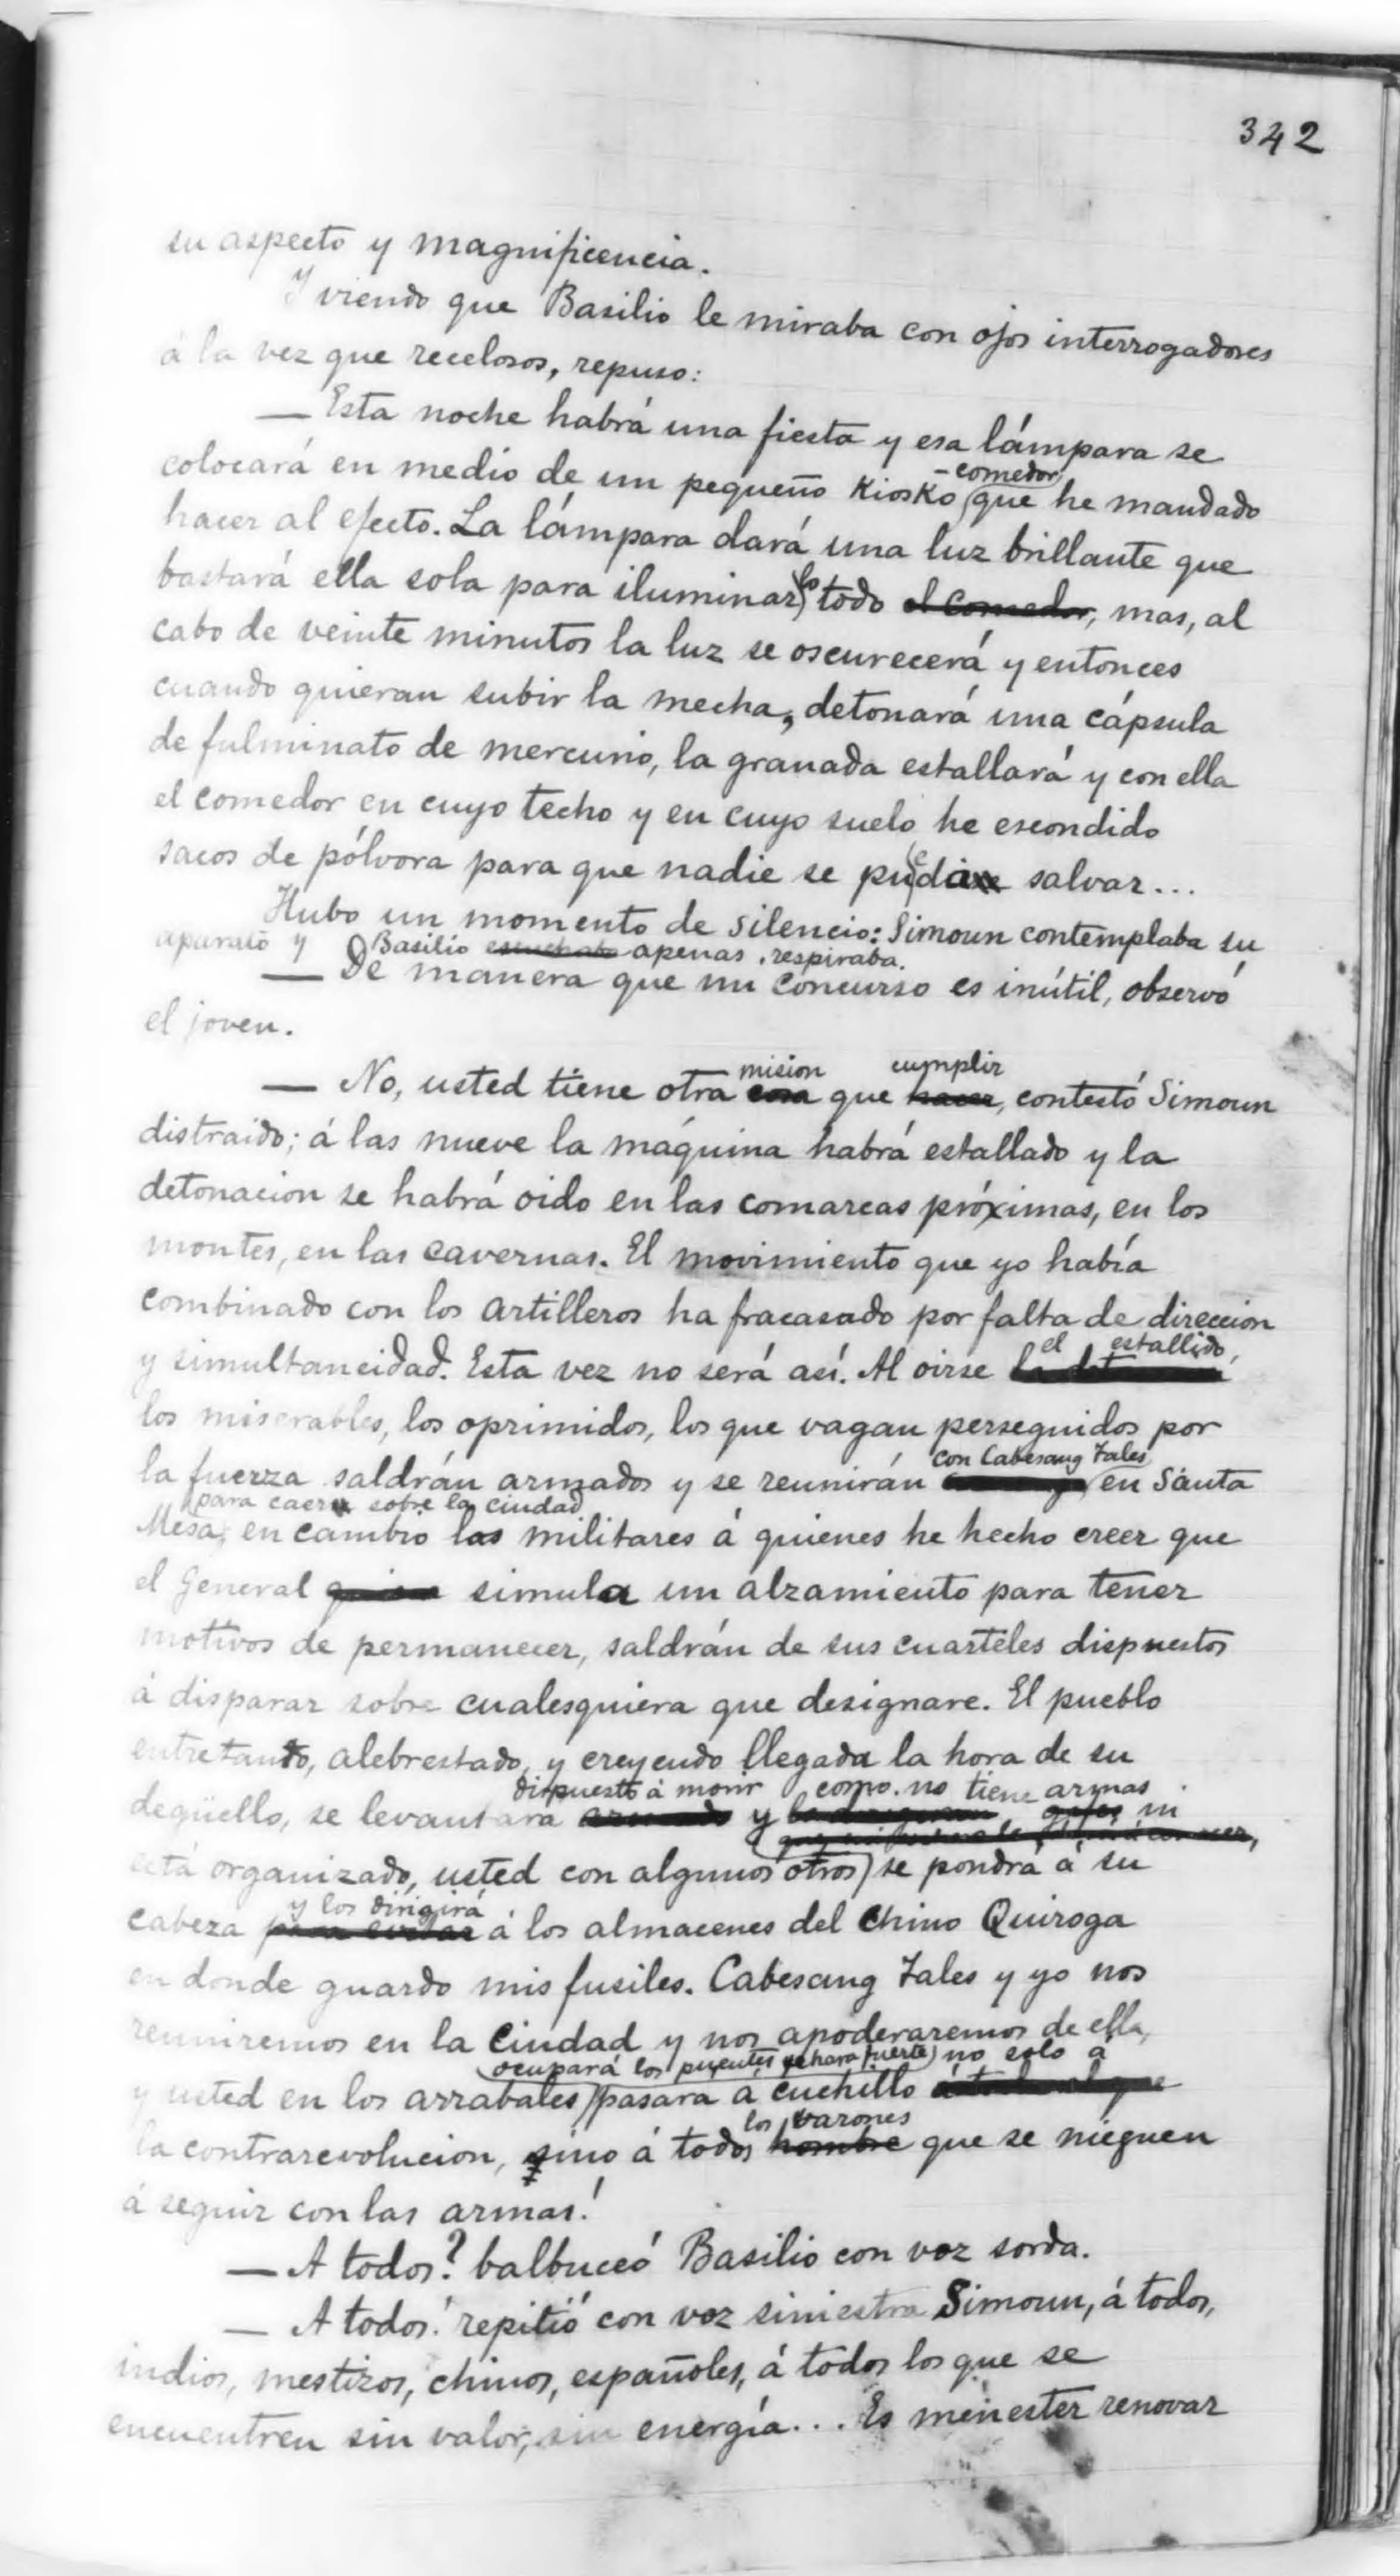 342
su aspecto y magnificencia.
Y viendo que Basilio le miraba con ojos interrogadores
á la vez que recelosos, repuso:
— Esta noche habrá una fiesta y esa lámpara se
colocará en medio de un pequeño kiosko -comedor que he mandado
hacer al efecto. La lámpara dará una luz brillante que
bastará ella sola para iluminarlo todo el comedor, mas, al
cabo de veinte minutos la luz se oscurecerá y entonces
cuando quieran subir la mecha, detonará una cápsula
de fulminato de mercurio, la granada estallará y con ella
el comedor en cuyo techo y en cuyo suelo he escondido
sacos de pólvora para que nadie se pueda salvar...
Hubo un momento de silencio: Simoun contemplaba su
aparato y Basilio escuchaba apenas respiraba.
— De manera que mi concurso es inútil, observó
el joven.
— No, usted tiene otra cosa mision que hacer cumplir, contestó Simoun
distraido; á las nueve la máquina habrá estallado y la
detonacion se habrá oido en las comarcas próximas, en los
montes, en las cavernas. El movimiento que yo había
combinado con los artilleros ha fracasado por falta de direccion
y simultaneidad. Esta vez no será así. Al oirse el estallido,
los miserables, los oprimidos, los que vagan perseguidos por
la fuerza saldrán armados y se reunirán con Cabesang Tales en Santa
Mesa para caer sobre la ciudad; en cambio los militares á quienes he hecho creer que
el General simula un alzamiento para tener
motivos de permanecer, saldrán de sus cuarteles dispuestos
á disparar sobre cualesquiera que designare. El pueblo
entretanto, alebrestado, y creyendo llegada la hora de su
degüello, se levantara armado dispuesto á morir y como no tiene armas ni
está organizado, usted con algunos otros se pondrá á su
cabeza y los dirigirá á los almacenes del chino Quiroga
en donde guardo mis fusiles. Cabesang Tales y yo nos
reuniremos en la ciudad y nos apoderaremos de ella,
y usted en los arrabales ocupará los puentes, se hara fuerte pasara á cuchillo no solo á
la contrarevolucion, sino á todos hombre los varones que se nieguen
á seguir con las armas!
— A todos? balbuceó Basilio con voz sorda.
— A todos! repitió con voz siniestra Simoun, á todos,
indios, mestizos, chinos, españoles, á todos los que se
encuentren sin valor, sin energía... Es menester renovar